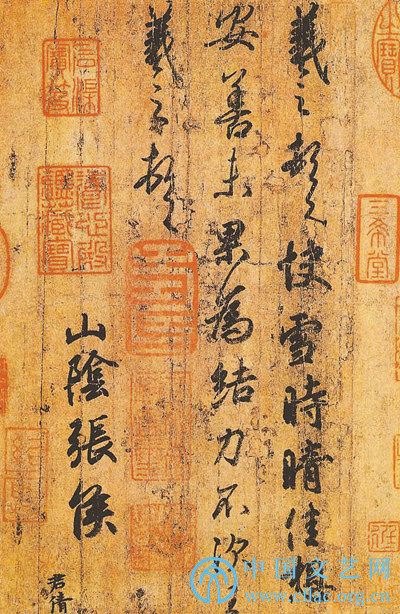 羲之頓首快雪時晴佳想
安善未果為結力不次王
羲之頓首
山陰張侯
君倩
三希堂
養心殿鑑藏寶
中国文艺网
www.cflac.org.cn